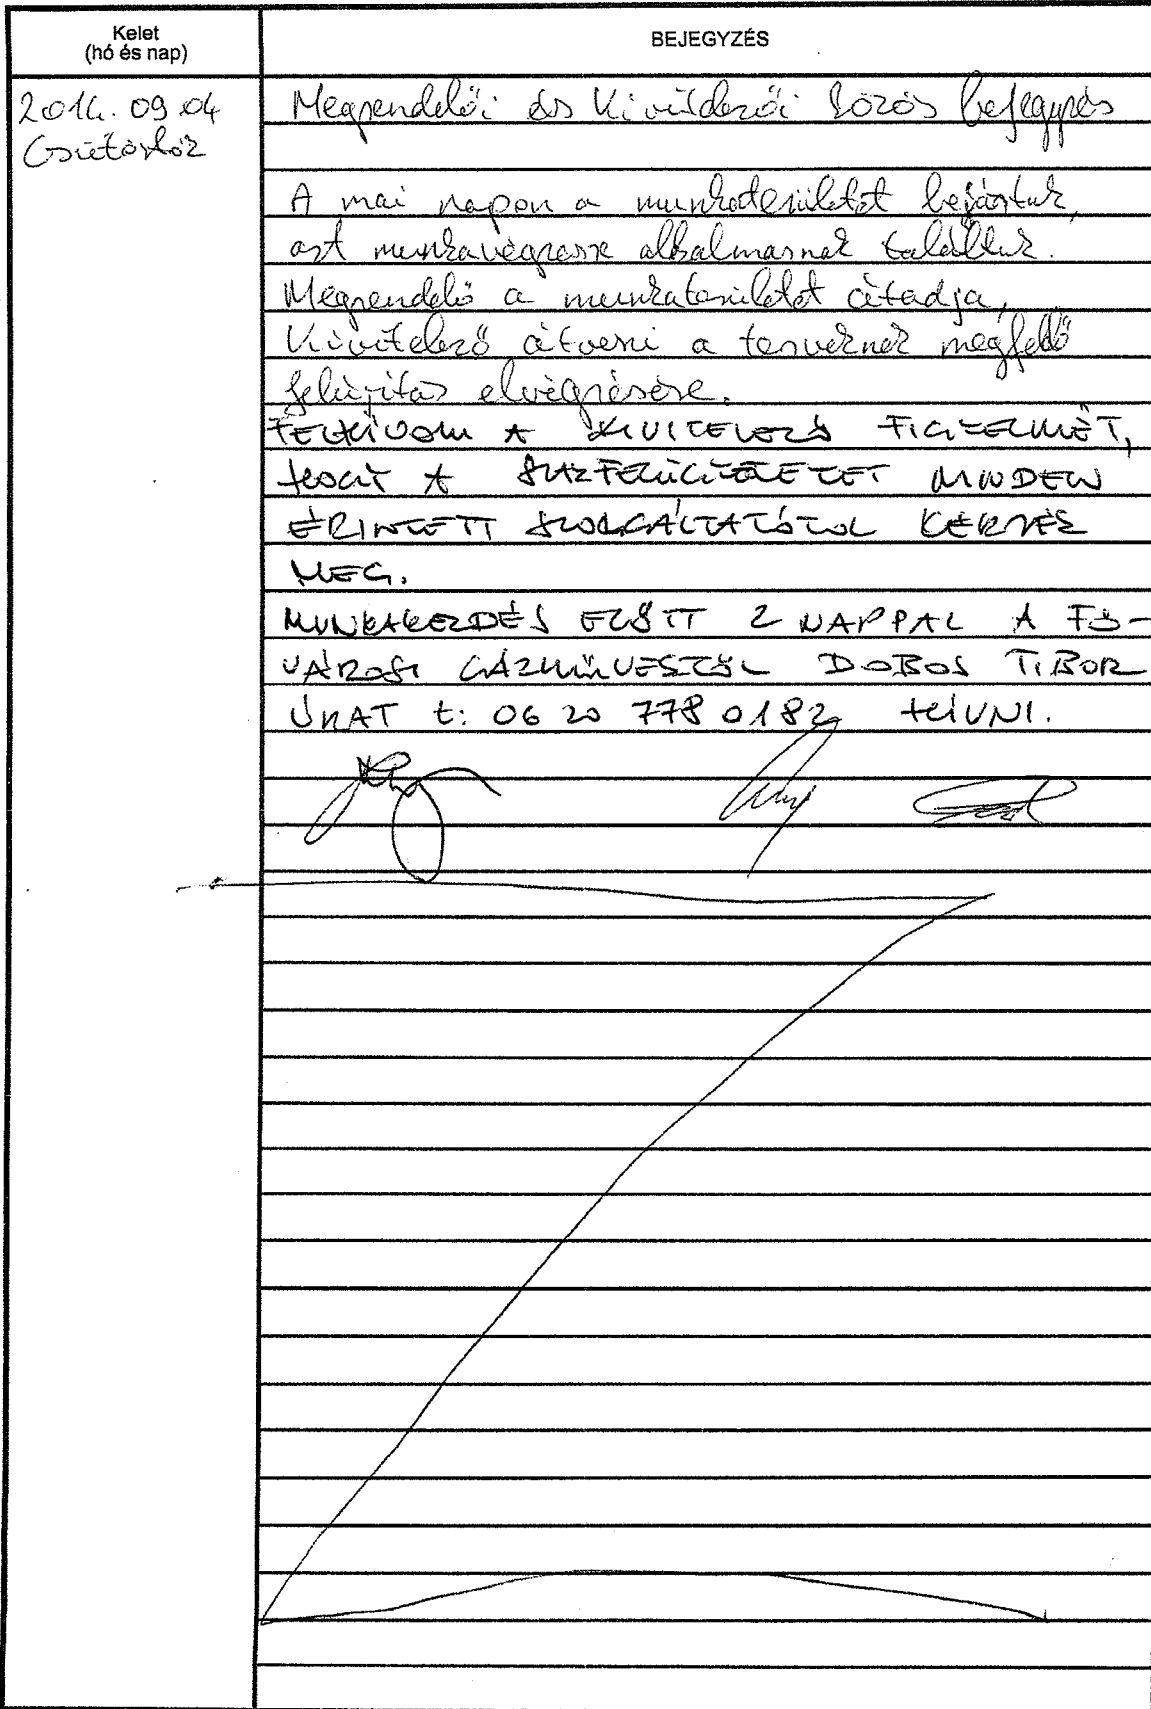 Kelet
(hó és nap)
BEJEGYZÉS
2014. 09 04
Csütörtök
Megrendelői és Kivitelezői közös bejegyzés
A mai napon a munkaterületet bejártuk,
azt munkavégzésre alkalmasnak találtuk.
Megrendelő a munkaterületet átadja,
Kivitelező átveszi a terveknek megfelő
felújítás elvégzésére.
FELHÍVOM A KIVITELEZŐ FIGYELMÉT,
HOGY A SZAKFELÜGYELETET MINDEN
ÉRINTETT SZOLGÁLTATÓTÓL KÉRJÉK
MEG.
MUNKAKEZDÉS ELŐTT 2 NAPPAL A FŐ-
VÁROSI GÁZMŰVEKTŐL DOBOS TIBOR
URAT t: 06 20 778 0182 HÍVNI.